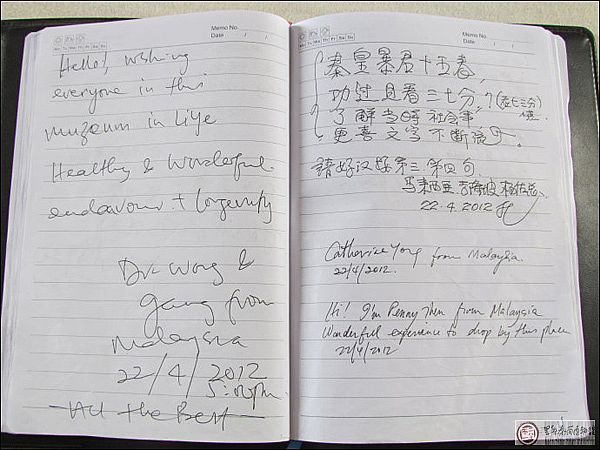 Memo No.
Date / /
Hello!, wishing
everyone in this
muzeum in Liye
Healthy & Wonderful
endavour + longevity
Dr. Wong &
gang from
Malaysia
22/4/2012
5:01pm.
All the Best
Memo No.
Date / /
秦皇暴君十五春,
功过且看三七分,?
了解当时社会事,
更喜文字不断
22.4.2012
Catherine Yong from Malaysia.
22/4/2012.
Hi! I'm Penny Then from Malaysia
Wonderful experience to drop by this place
22/4/2012